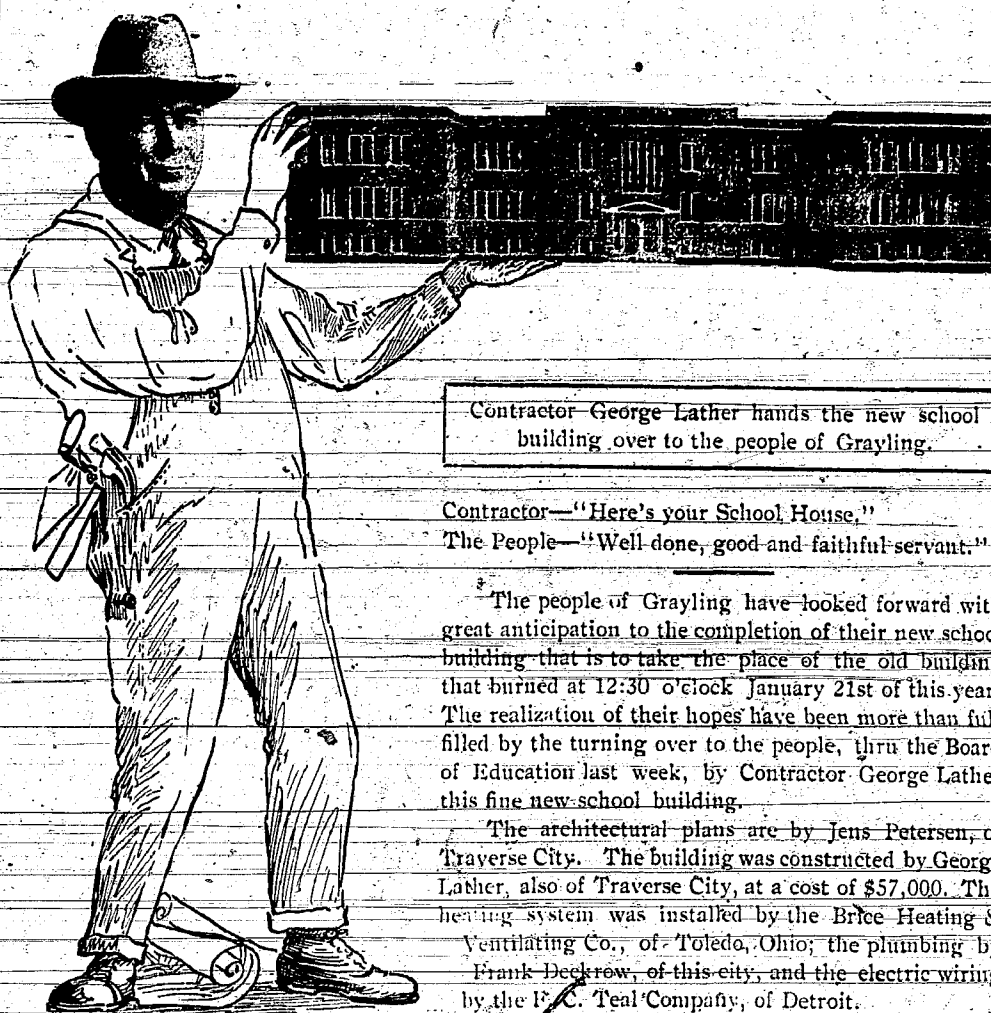 Contractor George Lather hands the new school
building over to the people of Grayling.
Contractor—"Here's your School House."
The People—"Well done, good and faithful servant."
The people of Grayling have looked forward wit
great anticipation to the completion of their new schoo
building that is to take the place of the old buildin
that burned at 12:30 o'clock January 21st of this year
The realization of their hopes have been more than ful
filled by the turning over to the people, thru the Boar
of Education last week, by Contractor George Lathe
this fine new school building.
The architectural plans are by Jens Petersen, o
Traverse City. The building was constructed by Georg
Lather, also of Traverse City, at a cost of $57,000. Th
heating system was installed by the Brice Heating &
Ventilating Co., of Toledo, Ohio; the plumbing b
Frank Deckrow, of this city, and the electric wiring
by the F. C. Teal Company, of Detroit.